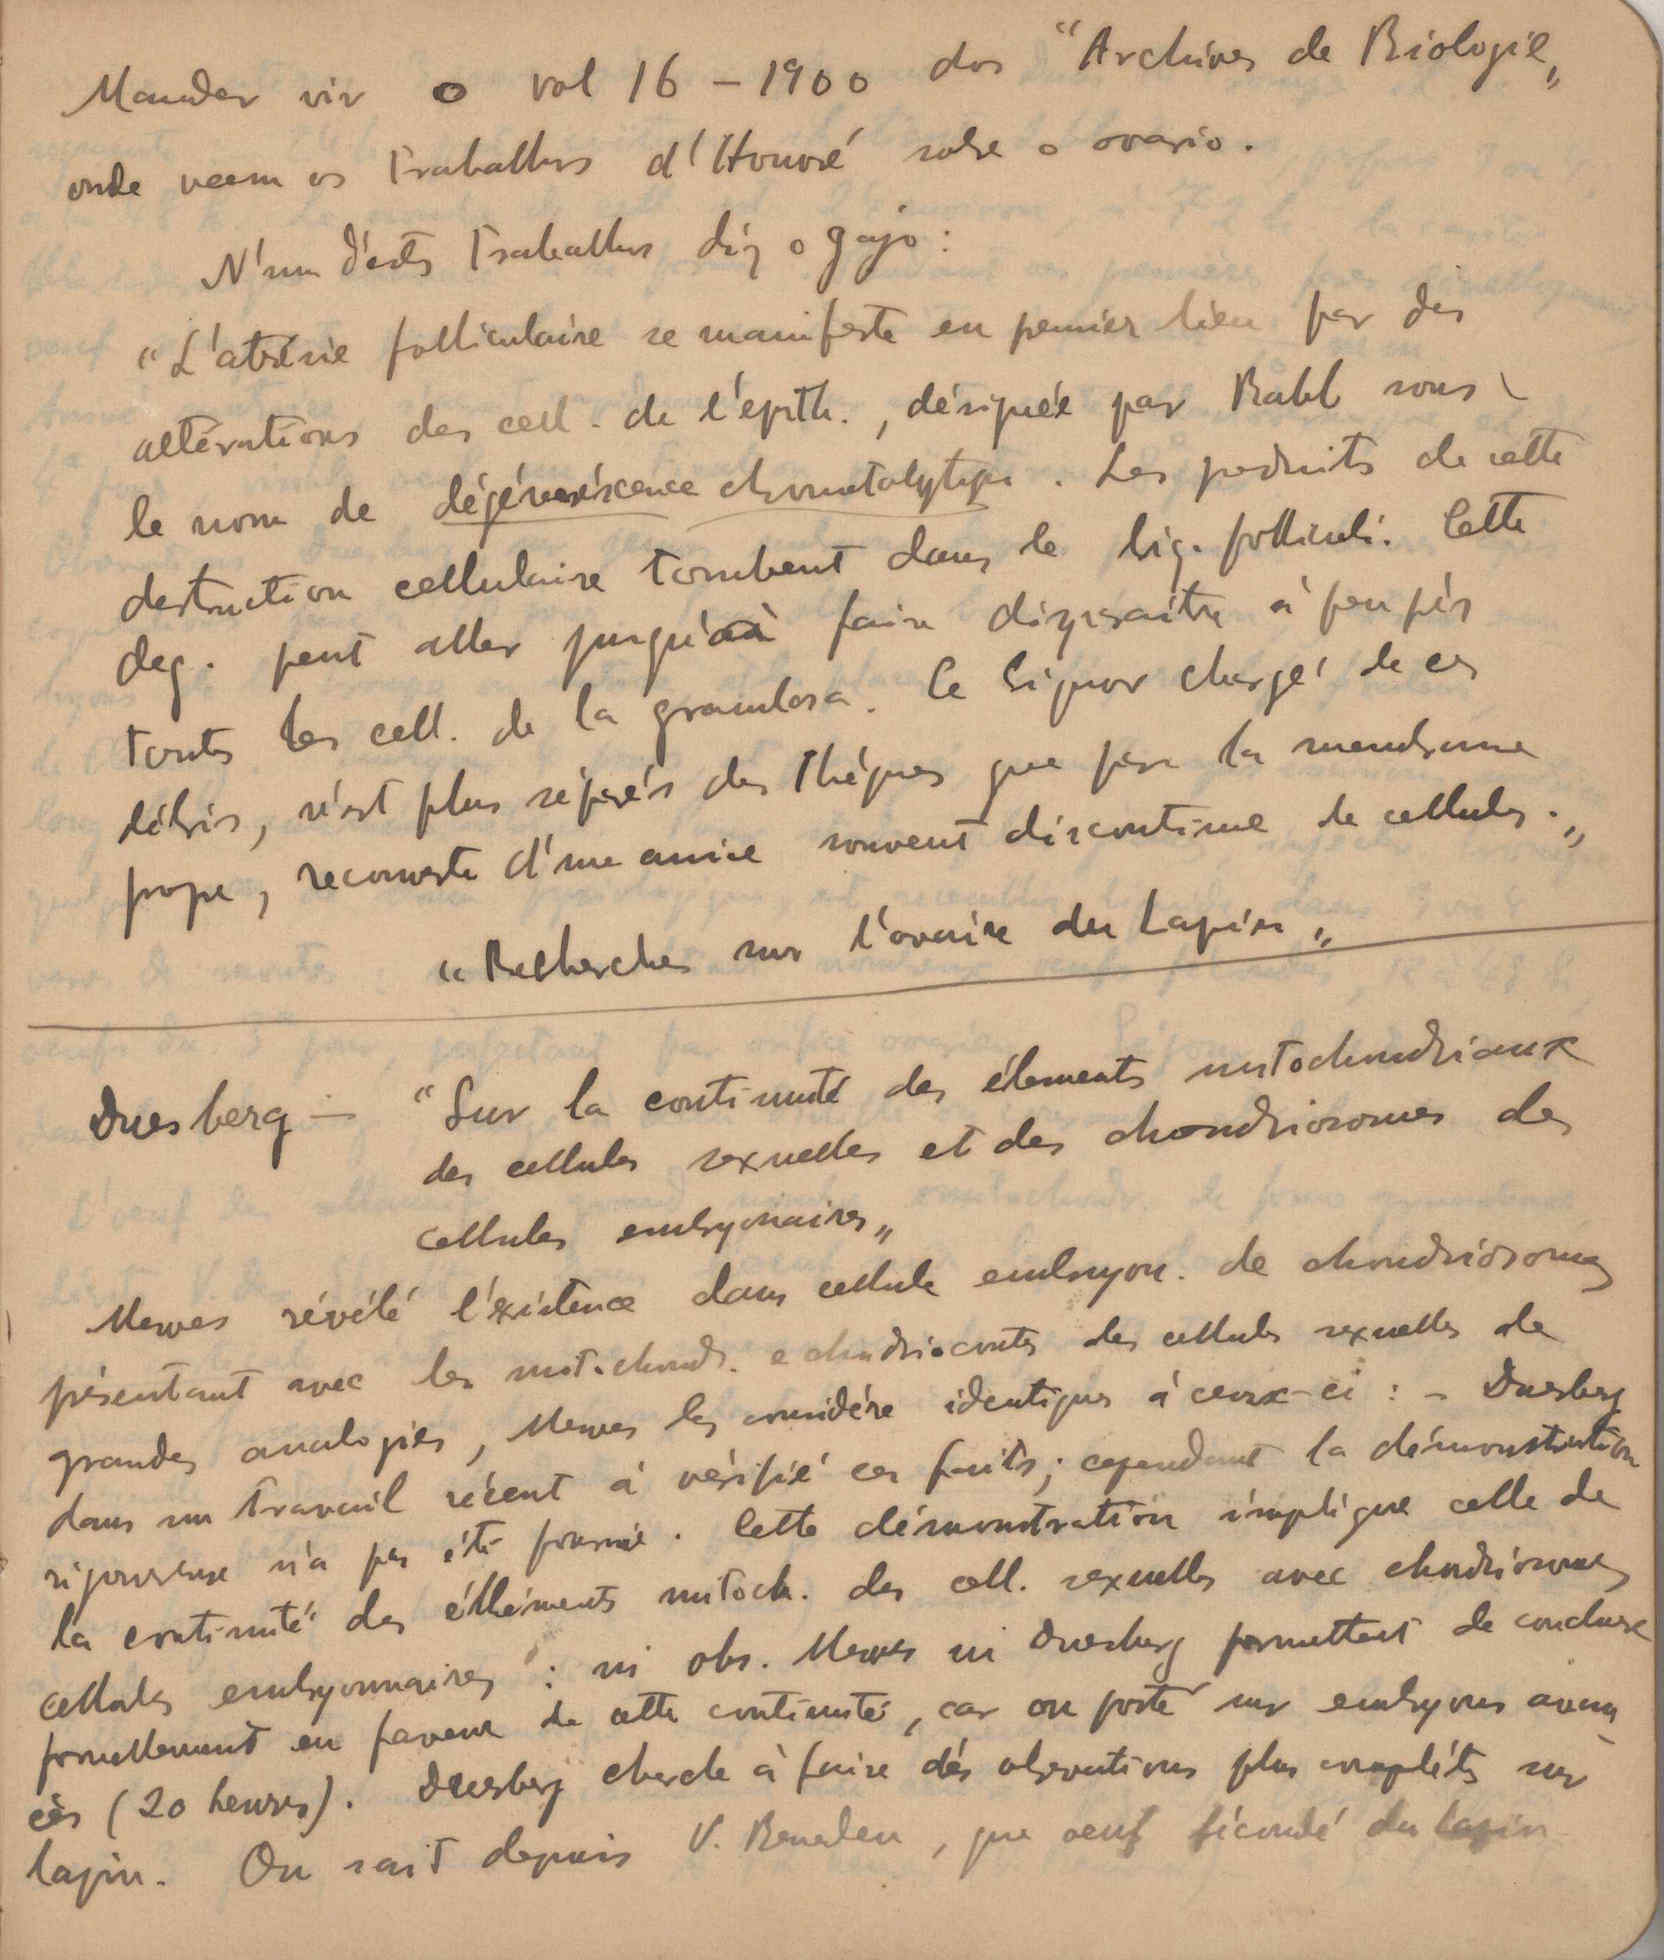 Mandar vir o vol 16 – 1900 dos "Archives de Biologie„
onde veem os Trabalhos d'Honoré sobre o ovario.
N'um d'estes Trabalhos diz o gajo:
"L'atrésie folliculaire se manifeste en premier lieu par des
altérations des cell. de l'epith., désignée par Rabl sous
le nom de dégénerescence chromatolytique. Les produits de cette
destruction cellulaire tombent dans le liq. folliculi. Cette
deg. peut aller jusqu'à faire disparaitre à peu près
toutes les cell. de la granulosa. Ce liquor chargé de ces
débris, n'est plus séparés des Thèques que par la membrane
propre, recouverte d'une assise souvent discontinue de cellules.„
"Recherches sur l'ovaire du Lapin„
Duesberg – "Sur la continuité des élements mitochondriaux
des cellules sexuelles et des chondriosomes des
cellules embryonaires„
Meves révélé l'existence dans cellule embryon. de chondriosomes
présentant avec les mitochond. e chondriocontes des cellules sexuelles de
grandes analogies, Meves les considére identiques à ceux-ci : – Duesberg
dans un Travail récent à vérifié ces faits; cependant la démonstration
rigoureuse n'a pas été fournie. Cette démonstration implique celle de
la continuité des élléments mitoch. des cell. sexuelles avec chondriosomes
cellules embryonnaires : ni obs. Meves ni Duesberg permettent de conclure
formellement en faveur de cette continuité, car on porté sur embryons avan
cés (20 heures). Duesberg cherche à faire dés observations plus complétes sur
lapin. On sait depuis V. Beneden, que oeuf fécondé du lapin